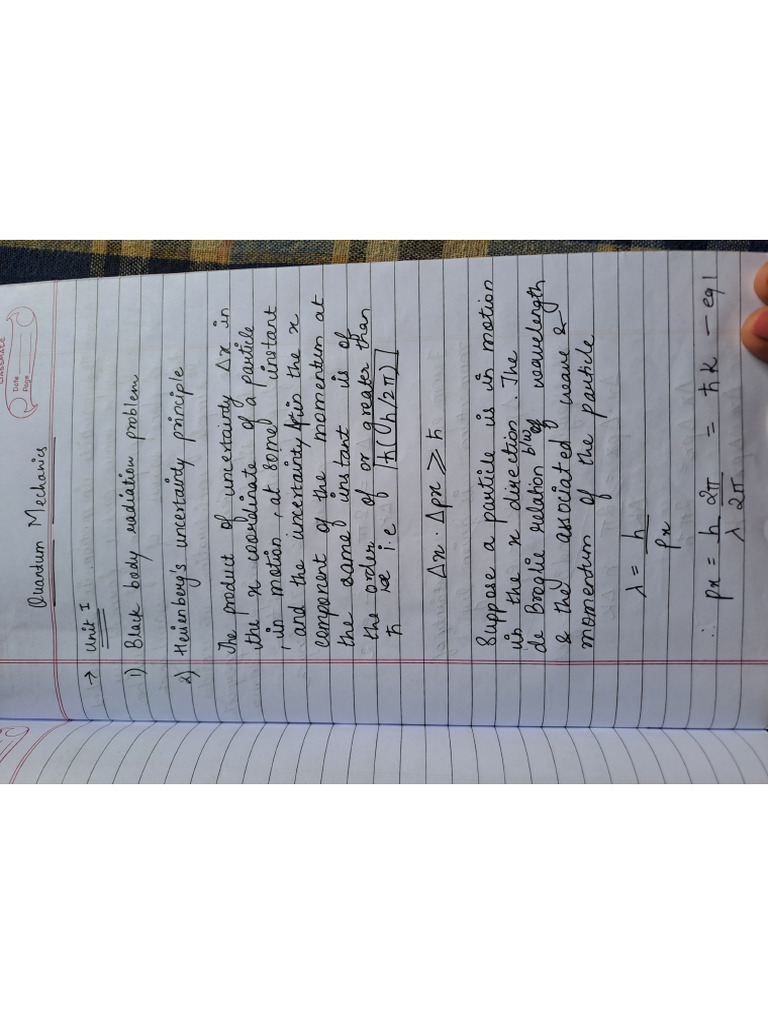 classmate
Date
Page
Quantum Mechanics
→ Unit I
1) Black body radiation problem
2) Heisenberg's uncertainty principle
The product of uncertainty Δx in
the x coordinate of a particle
in motion, at some instant
and the uncertainty in the x
component of the momentum at
the same instant is of
the order of or greater than
ħ i.e ħ(h/2π)
Δx · Δpx ⩾ ħ
Suppose a particle is in motion
in the x direction. The
de Broglie relation b/w wavelength
& the associated wave &
momentum of the particle
λ = h / px
∴ px = h/λ 2π/2π = ħk – eq 1